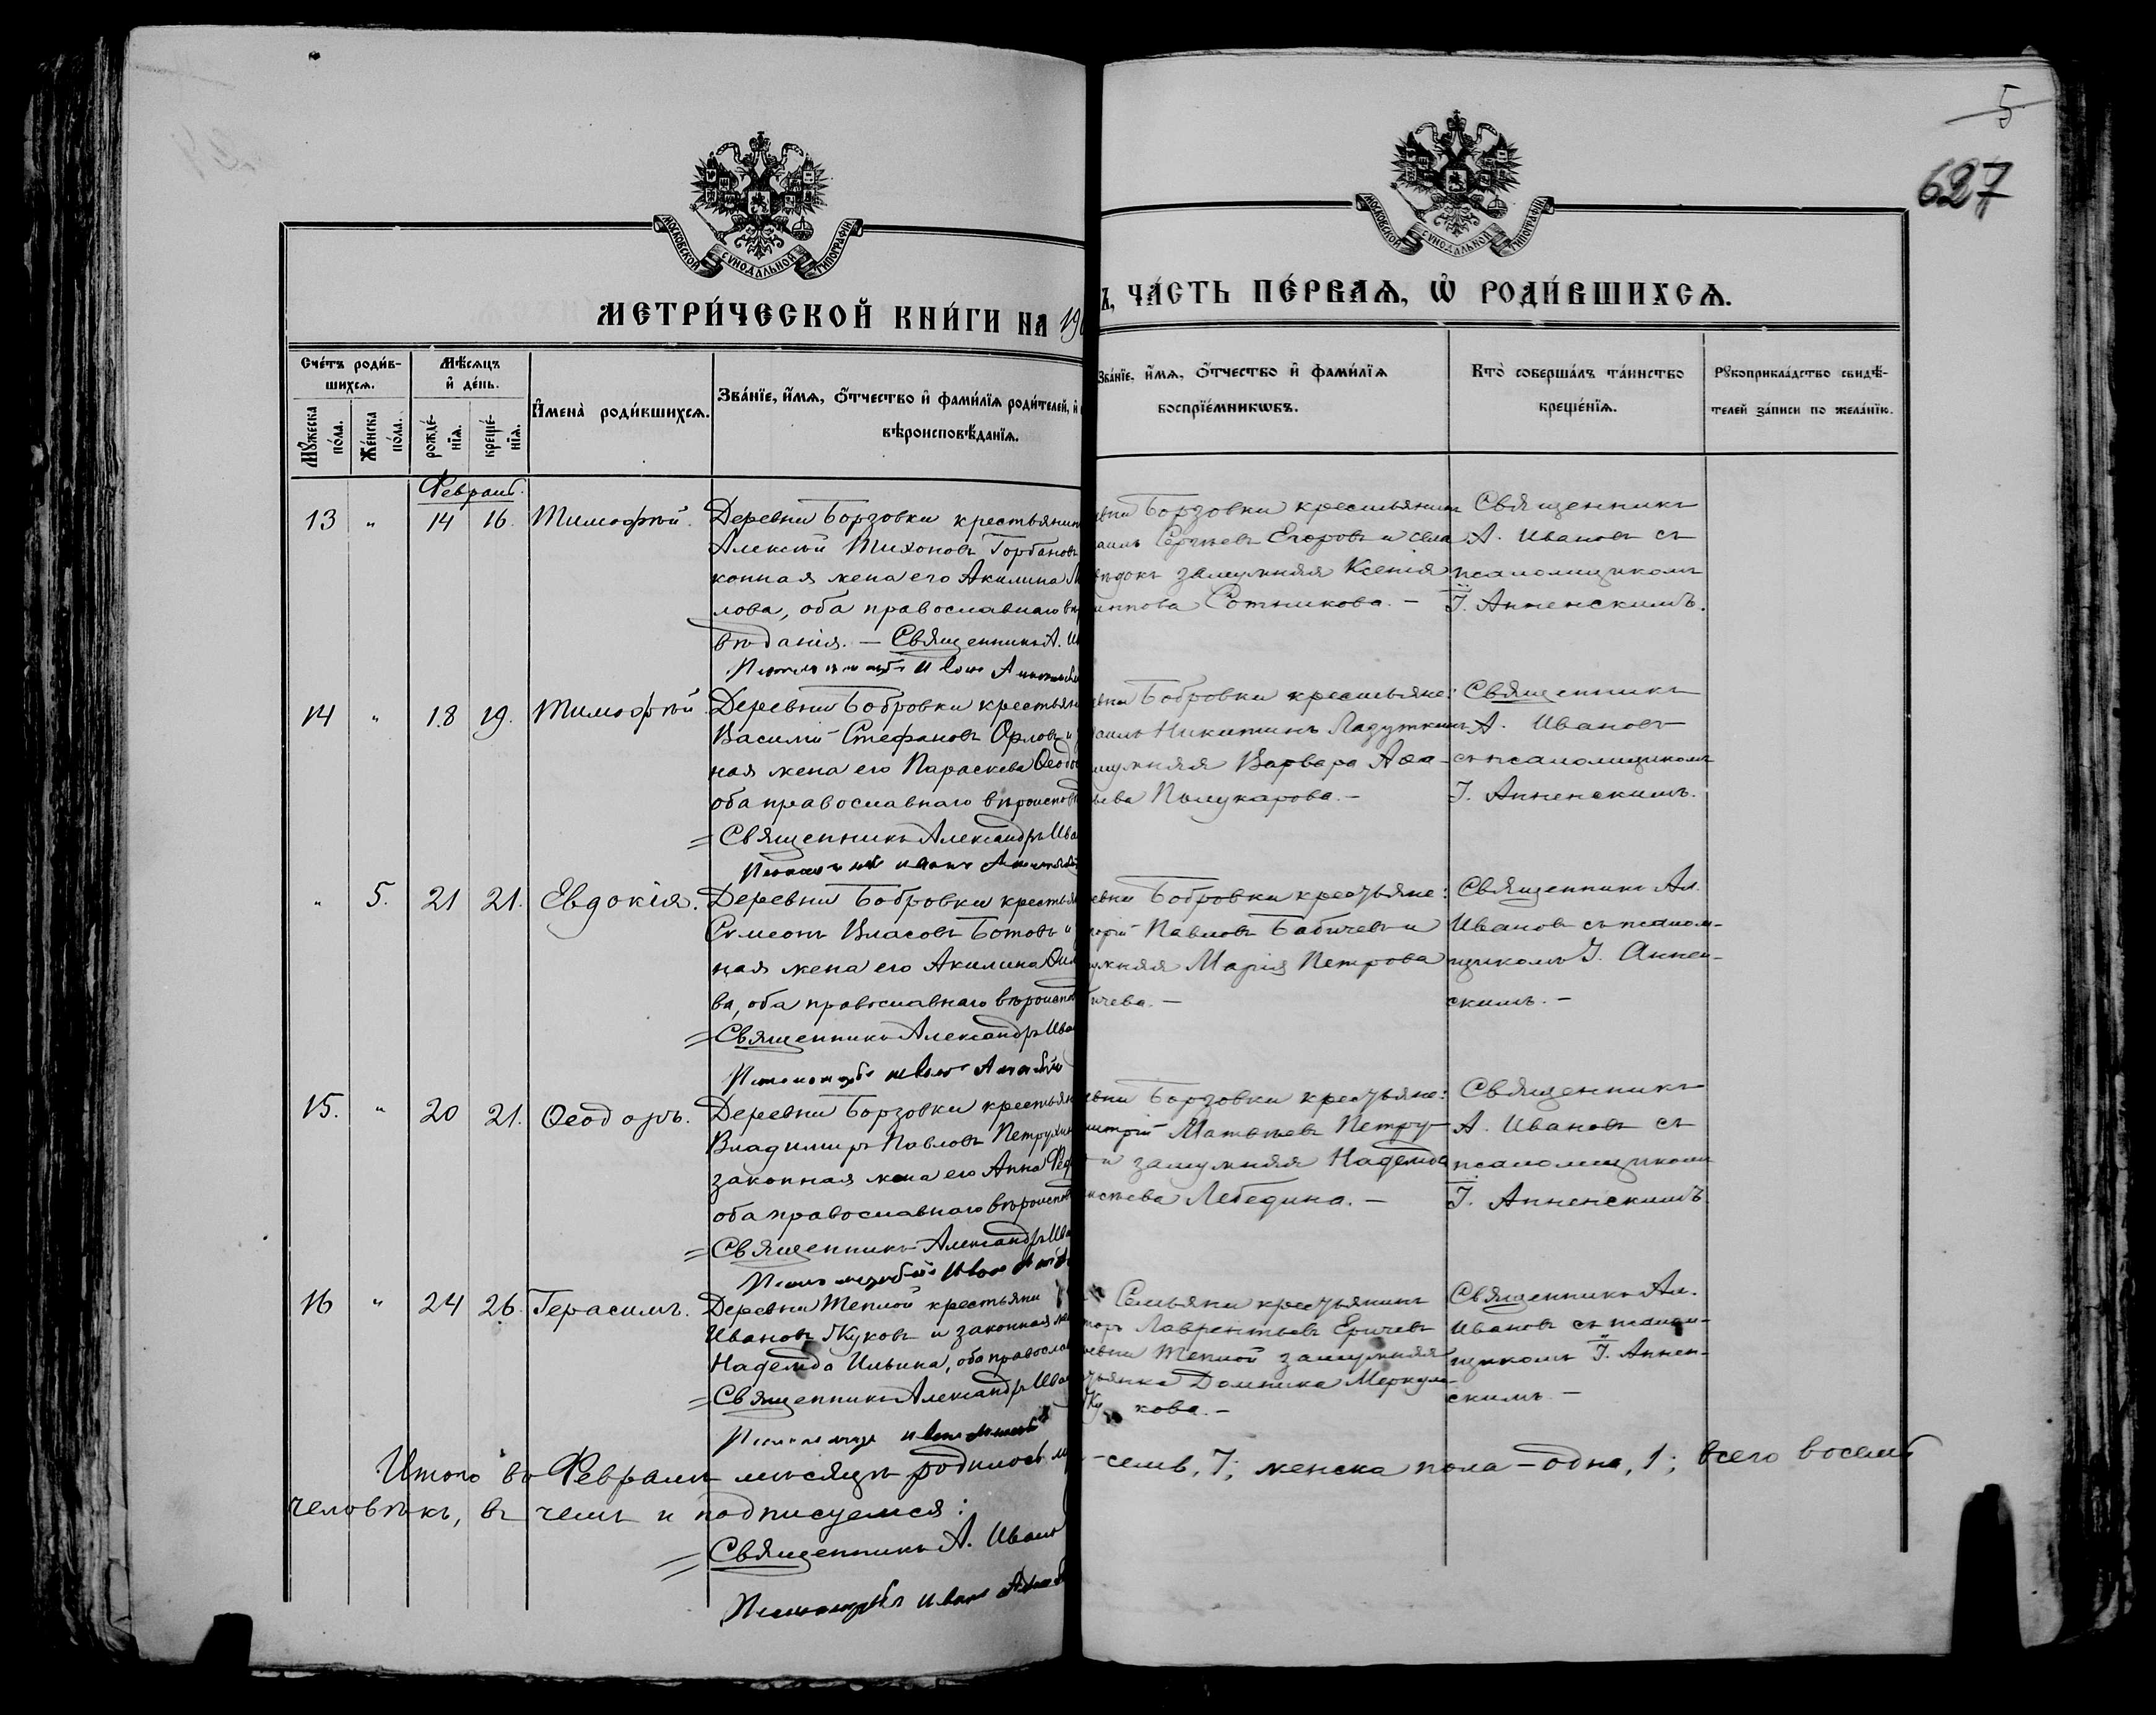 5
627
МОСКОВСКОЙ СѴНОДАЛЬНОЙ ТИПОГРАФІИ
МОСКОВСКОЙ СѴНОДАЛЬНОЙ ТИПОГРАФІИ
МЕТРИ́ЧЕСКОЙ КНИ́ГИ НА 19
Ъ, ЧА́СТЬ ПЕ́РВАѦ, Ѡ҆ РОДИ́ВШИХСѦ.
Сче́тъ роди́в-
шихсѧ.
Мꙋ́жеска по́ла.
Же́нска по́ла.
Мѣ́сѧцъ
и҆ де́нь.
рожде́-
нїѧ.
креще́-
нїѧ.
И҆мена̀ роди́вшихсѧ.
Зва́нїе, и҆́мѧ, ѻ҆́тчество и҆ фами́лїѧ роди́телей, и҆
вѣроисповѣ́данїѧ.
Зва́нїе, и҆́мѧ, ѻ҆́тчество и҆ фами́лїѧ
воспрїе́мникѡвъ.
Кто̀ соверша́лъ та́инство
креще́нїѧ.
Рꙋкоприкла́дство свидѣ́-
телей за́писи по жела́нїю.
Февраль.
13 " 14 16. Тимофѣй. Деревни Борзовки крестьянин
Алексѣй Тихоновъ Горбановъ
конная жена его Акилина М
лова, оба православнаго вѣр
вѣданія. — Священникъ А. И
Псаломщикъ Іоан
вни Борзовки крестьянинъ
аилъ Сергѣевъ Егоровъ и села
ѣдокъ замужняя Ксенія
иппова Сотникова. —
Священникъ
А. Ивановъ съ
псаломщикомъ
І. Анненскимъ.
14 " 18 19. Тимофѣй. Деревни Бобровки крестьян
Василій Стефановъ Орловъ и
ная жена его Параскева Ѳеодо
оба православнаго вѣроисповѣ
= Священникъ Александръ Ива
Псаломщикъ Іоаннъ
вни Бобровки крестьяне:
аилъ Никитинъ Ладуткинъ
мужняя Варвара Аѳа-
ьева Поликарова. —
Священникъ
А. Ивановъ
съ псаломщикомъ
І. Анненскимъ.
" 5. 21 21. Евдокія. Деревни Бобровки крестья
Сѵмеонъ Власовъ Ботовъ и
ная жена его Акилина
ва, оба православнаго вѣроиспов
= Священникъ Александръ Ива
Псаломщикъ
евни Бобровки крестьяне:
горій Павловъ Бабичевъ и
ужняя Марія Петрова
бичева. —
Священникъ Ал.
Ивановъ съ псалом-
щикомъ І. Аннен-
скимъ. —
15. " 20 21. Ѳеодоръ. Деревни Борзовки крестьян
Владимиръ Павловъ Петрухин
законная жена его Анна Фед
оба православнаго вѣроиспов
= Священникъ Александръ Ива
Псаломщикъ
вни Борзовки крестьяне:
митрій Матвѣевъ Петру-
и замужняя Надежда
нсѣева Лебедина. —
Священникъ
А. Ивановъ съ
псаломщикомъ
І. Анненскимъ.
16 " 24 26. Герасимъ. Деревни Теплой крестьяни
Ивановъ Жуковъ и законная же
Надежда Ильина, оба правосла
= Священникъ Александръ Ива
Псаломщикъ
Семьяни крестьянинъ
торъ Лаврентьевъ Еричевъ
евни Теплой замужняя
тьянка Домника Меркул-
Жу кова. —
Священникъ Ал.
Ивановъ съ псалом-
щикомъ І. Аннен-
скимъ. —
Итого въ Февралѣ мѣсяцѣ родилось му
семь, 7; женска пола — одна, 1; всего восемь
человѣкъ, въ чемъ и подписуемся:
= Священникъ А. Иван
Псаломщикъ Іоанъ